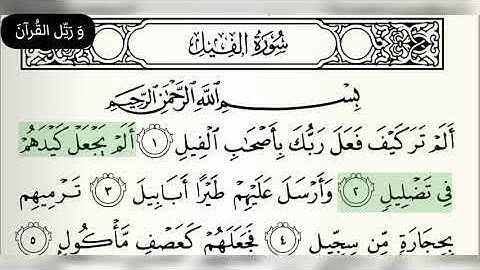 وَ رَتِّلِ القُرآنَ
سُورَةُ الفِيلِ
بِسْمِ اللَّهِ الرَّحْمَٰنِ الرَّحِيمِ
أَلَمْ تَرَ كَيْفَ فَعَلَ رَبُّكَ بِأَصْحَابِ الْفِيلِ ١ أَلَمْ يَجْعَلْ كَيْدَهُمْ
فِي تَضْلِيلٍ ٢ وَأَرْسَلَ عَلَيْهِمْ طَيْرًا أَبَابِيلَ ٣ تَرْمِيهِم
بِحِجَارَةٍ مِّن سِجِّيلٍ ٤ فَجَعَلَهُمْ كَعَصْفٍ مَّأْكُولٍ ٥